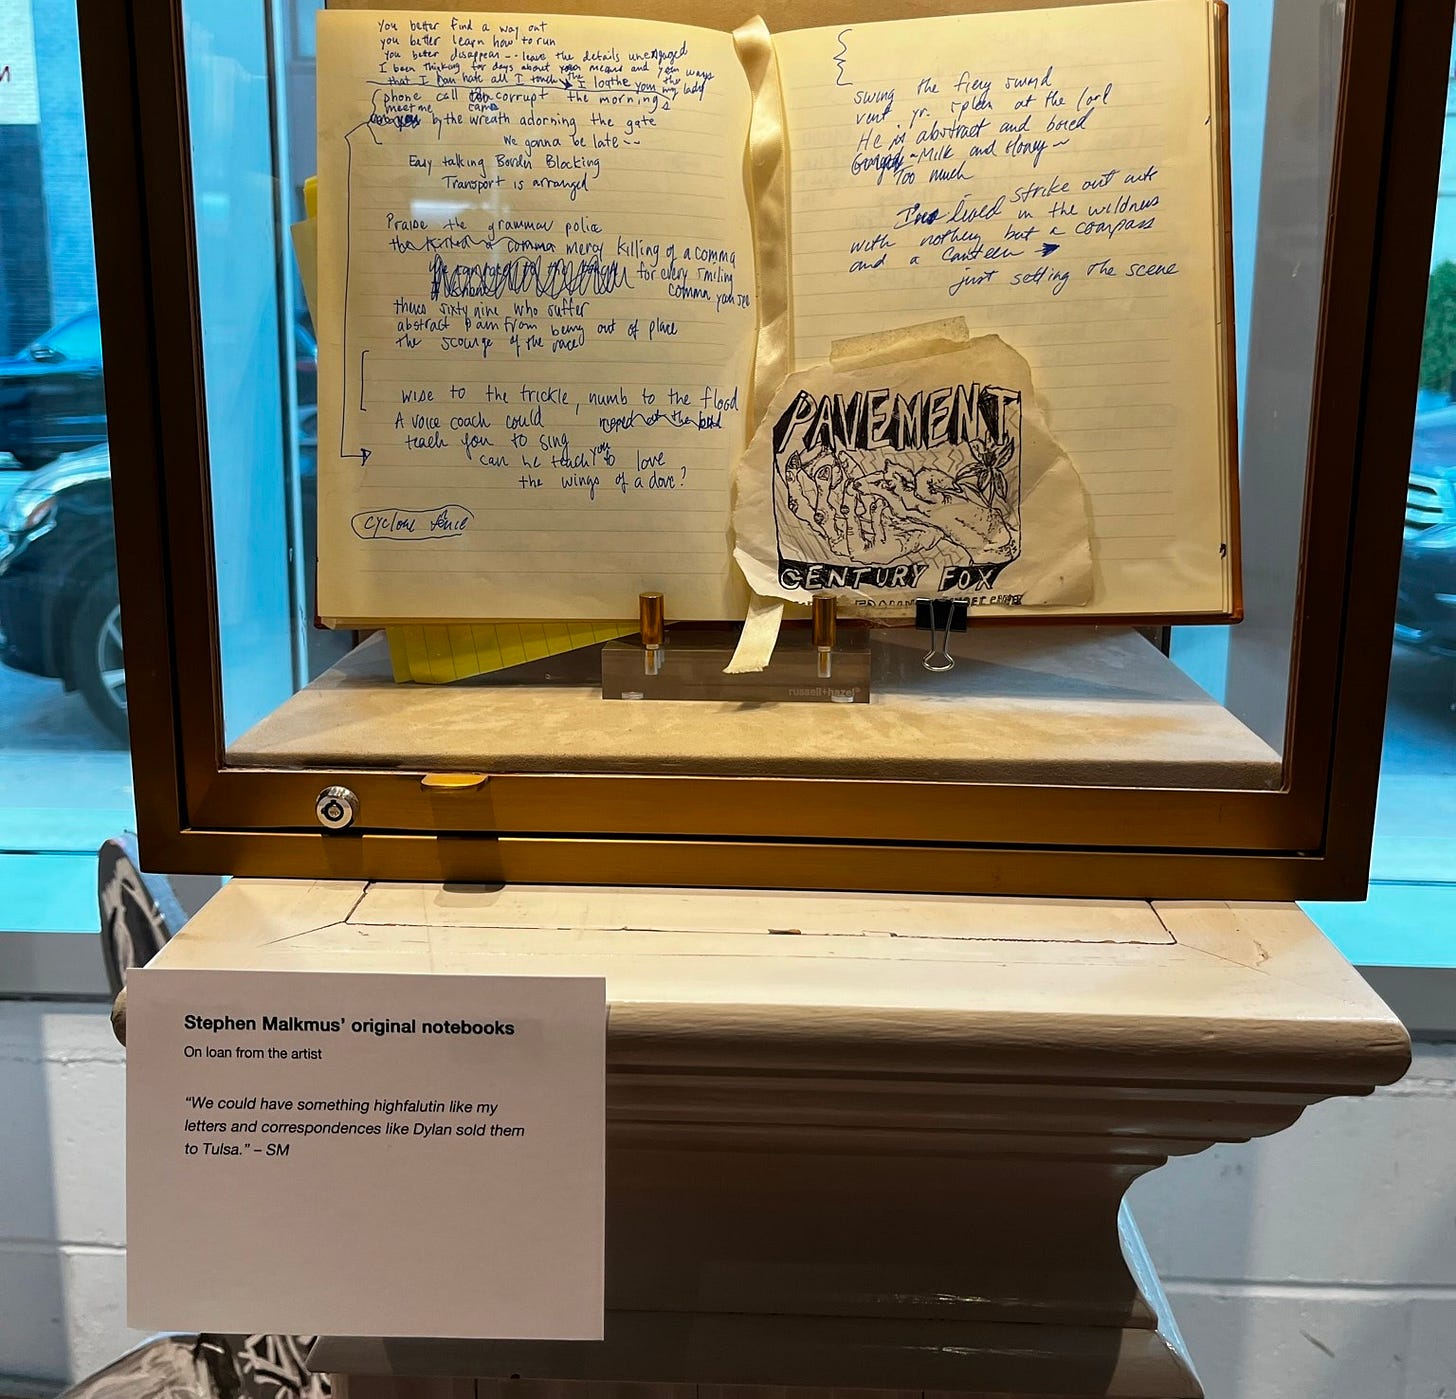 You better find a way out
you better learn how to run
You better disappear -- leave the details unengaged
I been thinking for days about your means and your ways
that I can hate all I touch the I loathe you my lady
phone call corrupt the mornings
meet me
by the wreath adorning the gate
We gonna be late --
Easy talking Border Blocking
Transport is arranged
Praise the grammar police
the comma mercy killing of a comma
for every smiling
comma you see
theres sixty nine who suffer
abstract pain from being out of place
the scourge of the race
wise to the trickle, numb to the flood
A voice coach could
teach you to sing
can he teach you to love
the wings of a dove?
cyclone fence
swing the fiery sword
vent yr. spleen at the lord
He is abstract and bored
Milk and Honey ~
Too much
I've lived strike out
in the wildness
with nothing but a compass
and a canteen
just setting the scene
PAVEMENT
CENTURY FOX
russell+hazel®
Stephen Malkmus’ original notebooks
On loan from the artist
“We could have something highfalutin like my
letters and correspondences like Dylan sold them
to Tulsa.” – SM